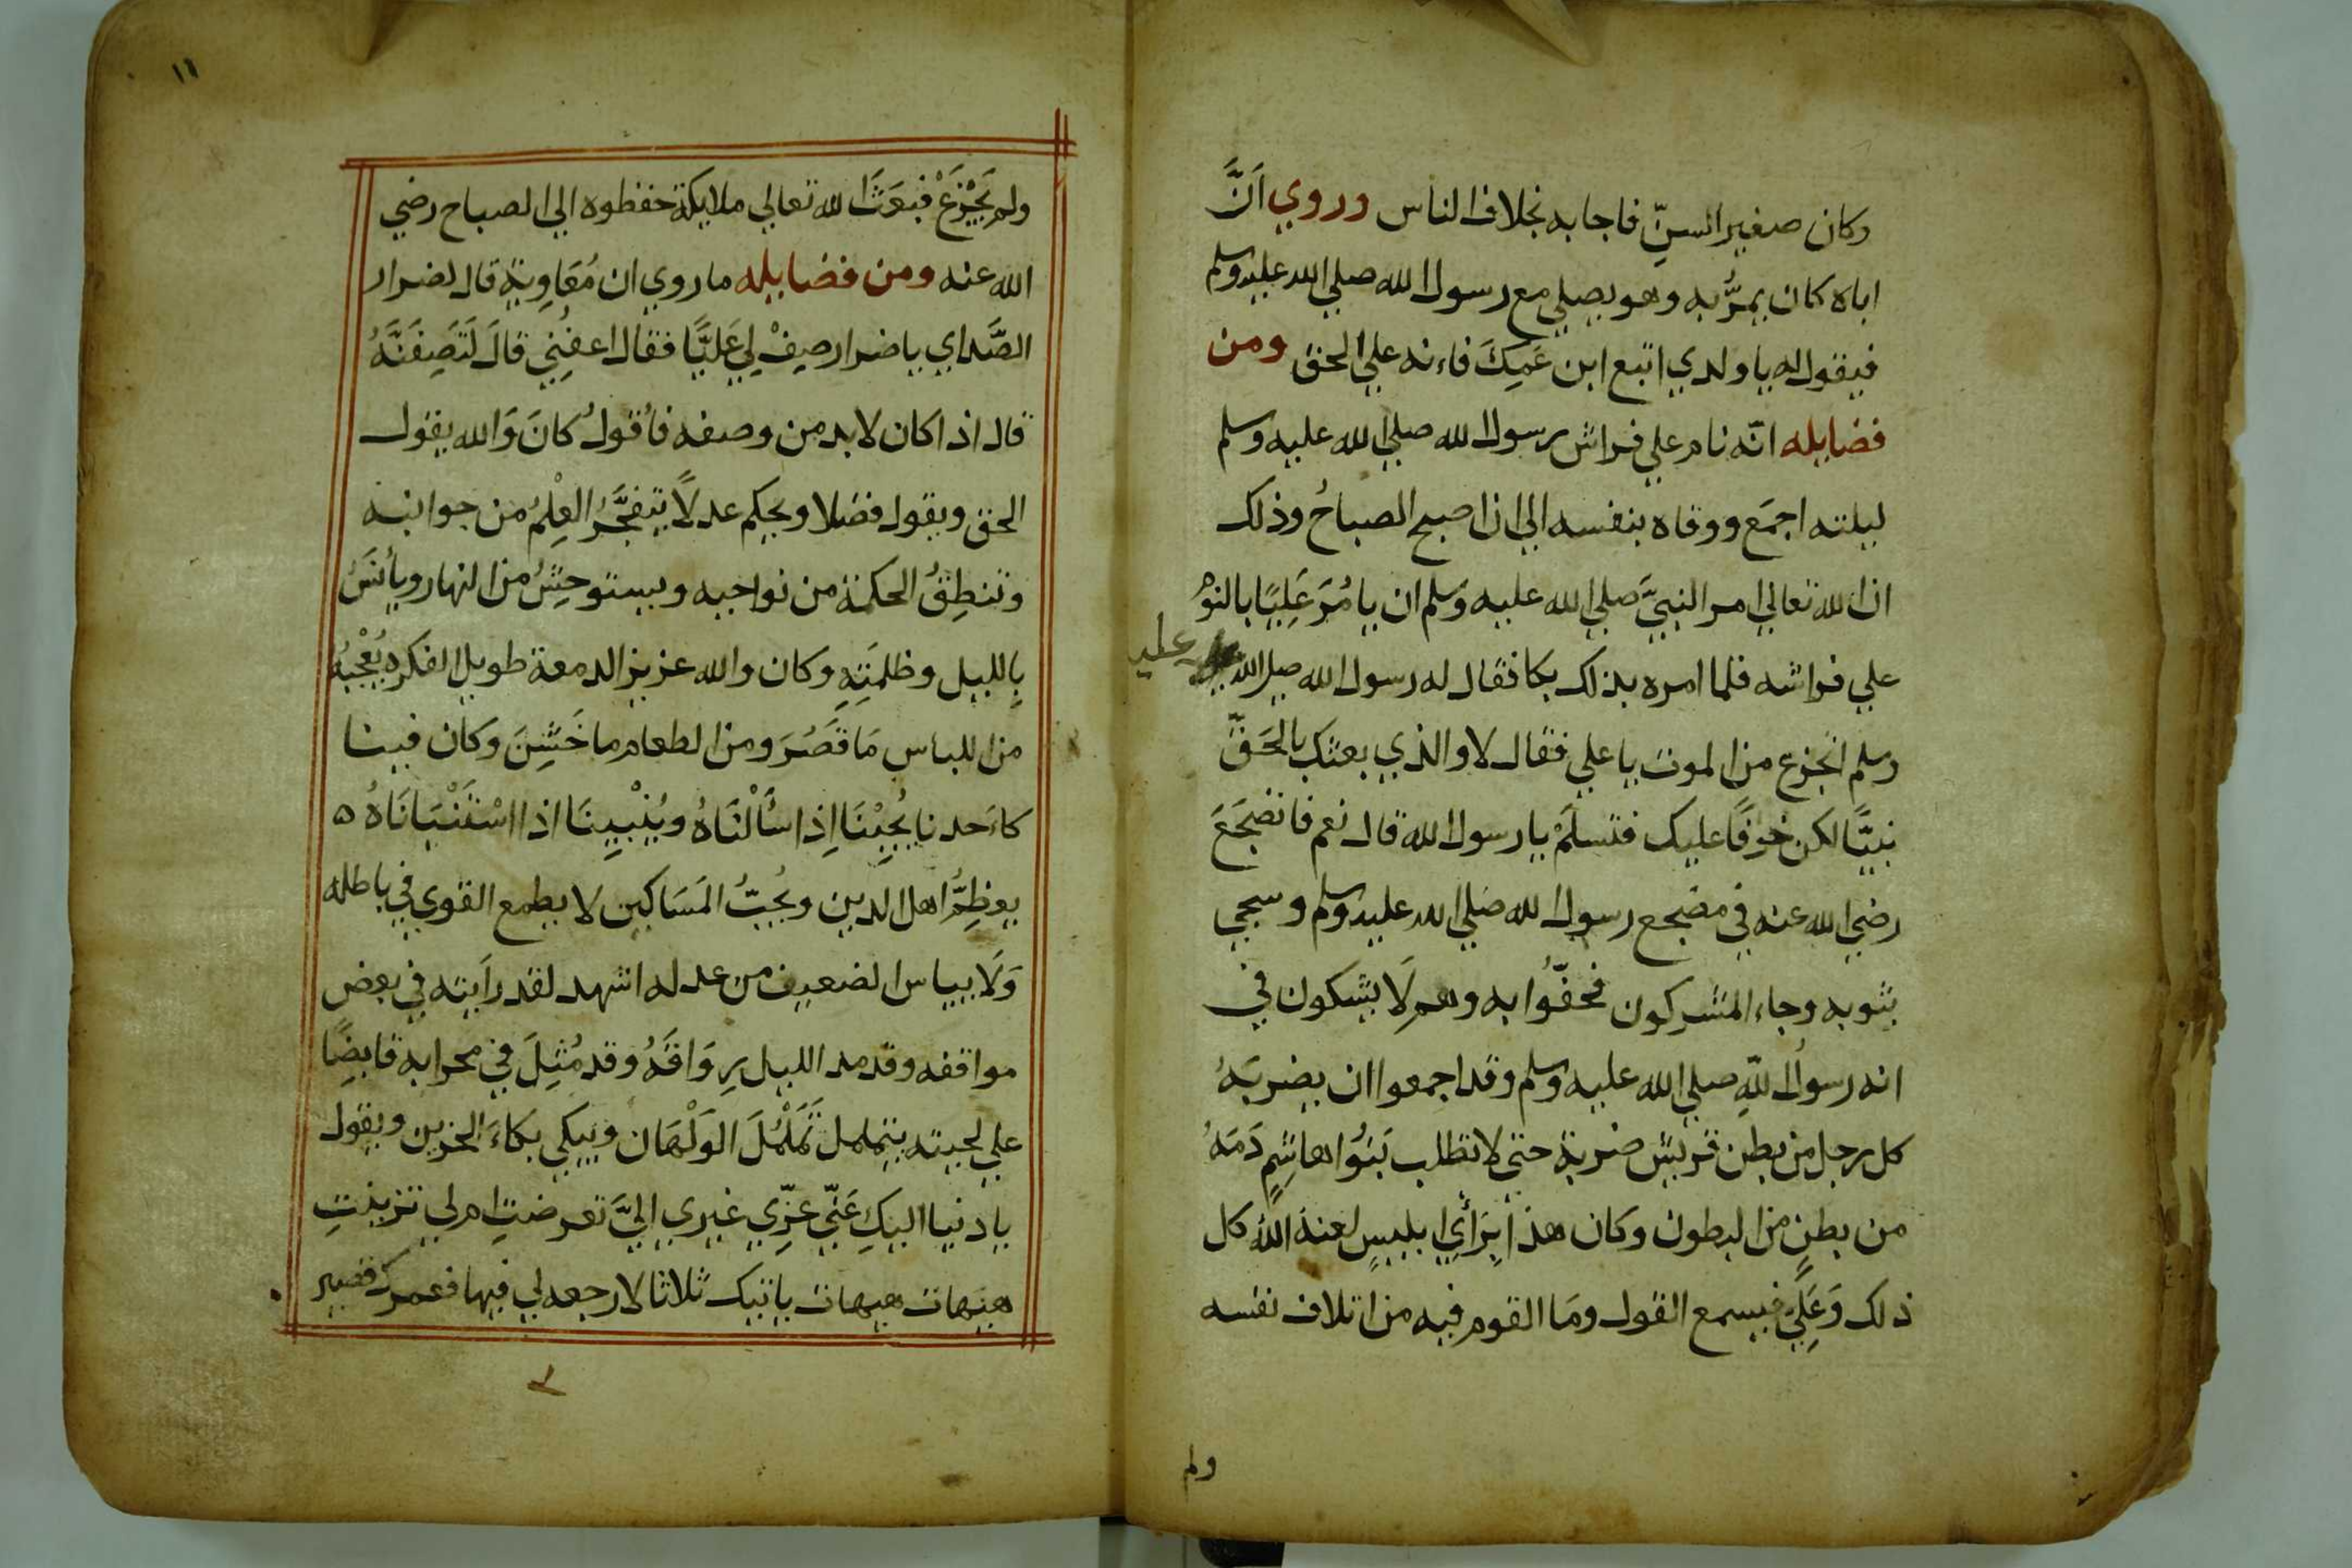 وكان صغير السنّ فاجابه بخلاف الناس وروي اَنَّ
اباه كان يمرُّ به وهو يصلي مع رسول الله صلي الله عليه وسلم
فيقول له يا ولدي اتبع ابن عَمِكَ فاءنه علي الحق ومن
فضايله انّه نام علي فراش رسول الله صلي الله عليه وسلم
ليلته اجمَع ووقاه بنفسه الي ان اصبح الصباحُ وذلك
ان الله تعالي امر النبيَّ صلي الله عليه وَسلم ان يامُرَ عَلِيًا بالنوم
علي فراشه فلما امره بذلك بكا فقال له رسول الله صلي الله عليه
وسلم اتجزع من الموت يا علي فقال لا والذي بعثك بالحَقّ
نبيًّا لكن خوفًا عليك فتسلَمْ يا رسول الله قال نعم فانضجَعَ
رضي الله عنه في مضجع رسول الله صلي الله عليه وسلم وسجي
بثوبه وجاء المشركون فحفّوُا به وهم لَا يشكون في
انه رسولُ اللّهِ صلي الله عليه وسلم وقد اجمعوا ان يضربَهُ
كل رجل من بطن قريش ضربة حتي لا تطلب بَنُوا هاشِمٍ دَمَهُ
من بطنٍ من البطون وكان هذا بِرَأيِ ابليسٍ لعنهُ اللهُ كل
ذلك وَعَلِيٌّ فيسمع القول ومَا القوم فيه من اتلاف نفسه
ولم
١١
ولم يَجْزَعْ فبَعَثَ الله تعالي ملايكة حفظوه الي الصباح رضي
الله عنه ومن فضايله ما روي ان مُعَاوِية قال لضرار
الصَّداي يا ضرار صِفْ لِي عَليًّا فقال اعفُنِي قالَ لَتَصِفَنَّهُ
قال اذا كان لا بد من وصفه فأقولُ كانَ وَالله يقول
الحق ويقول فضلا ويحكم عدلًا يتفجَّرُ العْلِمُ من جوانبه
وتنطِقُ الحكمة من نواحيه ويستوحِشُ من النهار ويأنَسُ
بِالليل وظلمَتِهِ وكان والله عزيز الدمعة طويل الفكره يُعْجِبُهُ
من اللباس مَا قَصُرَ ومن الطعام ما خَشِنَ وكان فينا
كاءَحدنا يُجِيْبُنَا اِذا سَأَلْنَاهُ ويُنْبِينَا اذا اسْتَنْبَانَاهُ ه
يعظِمُّ اهل الدين ويُحِبُّ المَسَاكين لا يطمع القوي في باطله
وَلَا يياس الضعيف من عدله اشهد لقد رَايته في بعض
مواقفه وقد مد الليل رِوَاقَهُ وقد مُثِلَ في محرابه قابضًا
علي لحيته يتململ تَمَلْمُلَ الوَلْهَان ويبكي بكاءَ الحزين ويقول
يا دنيا اليكِ عَنِّي غِرِّي غيري اليَّ تعرضتِ ام لي تزينتِ
هيهات هيهات باتيك ثلاثا لا رجعه لي فيها فعمرك قصير